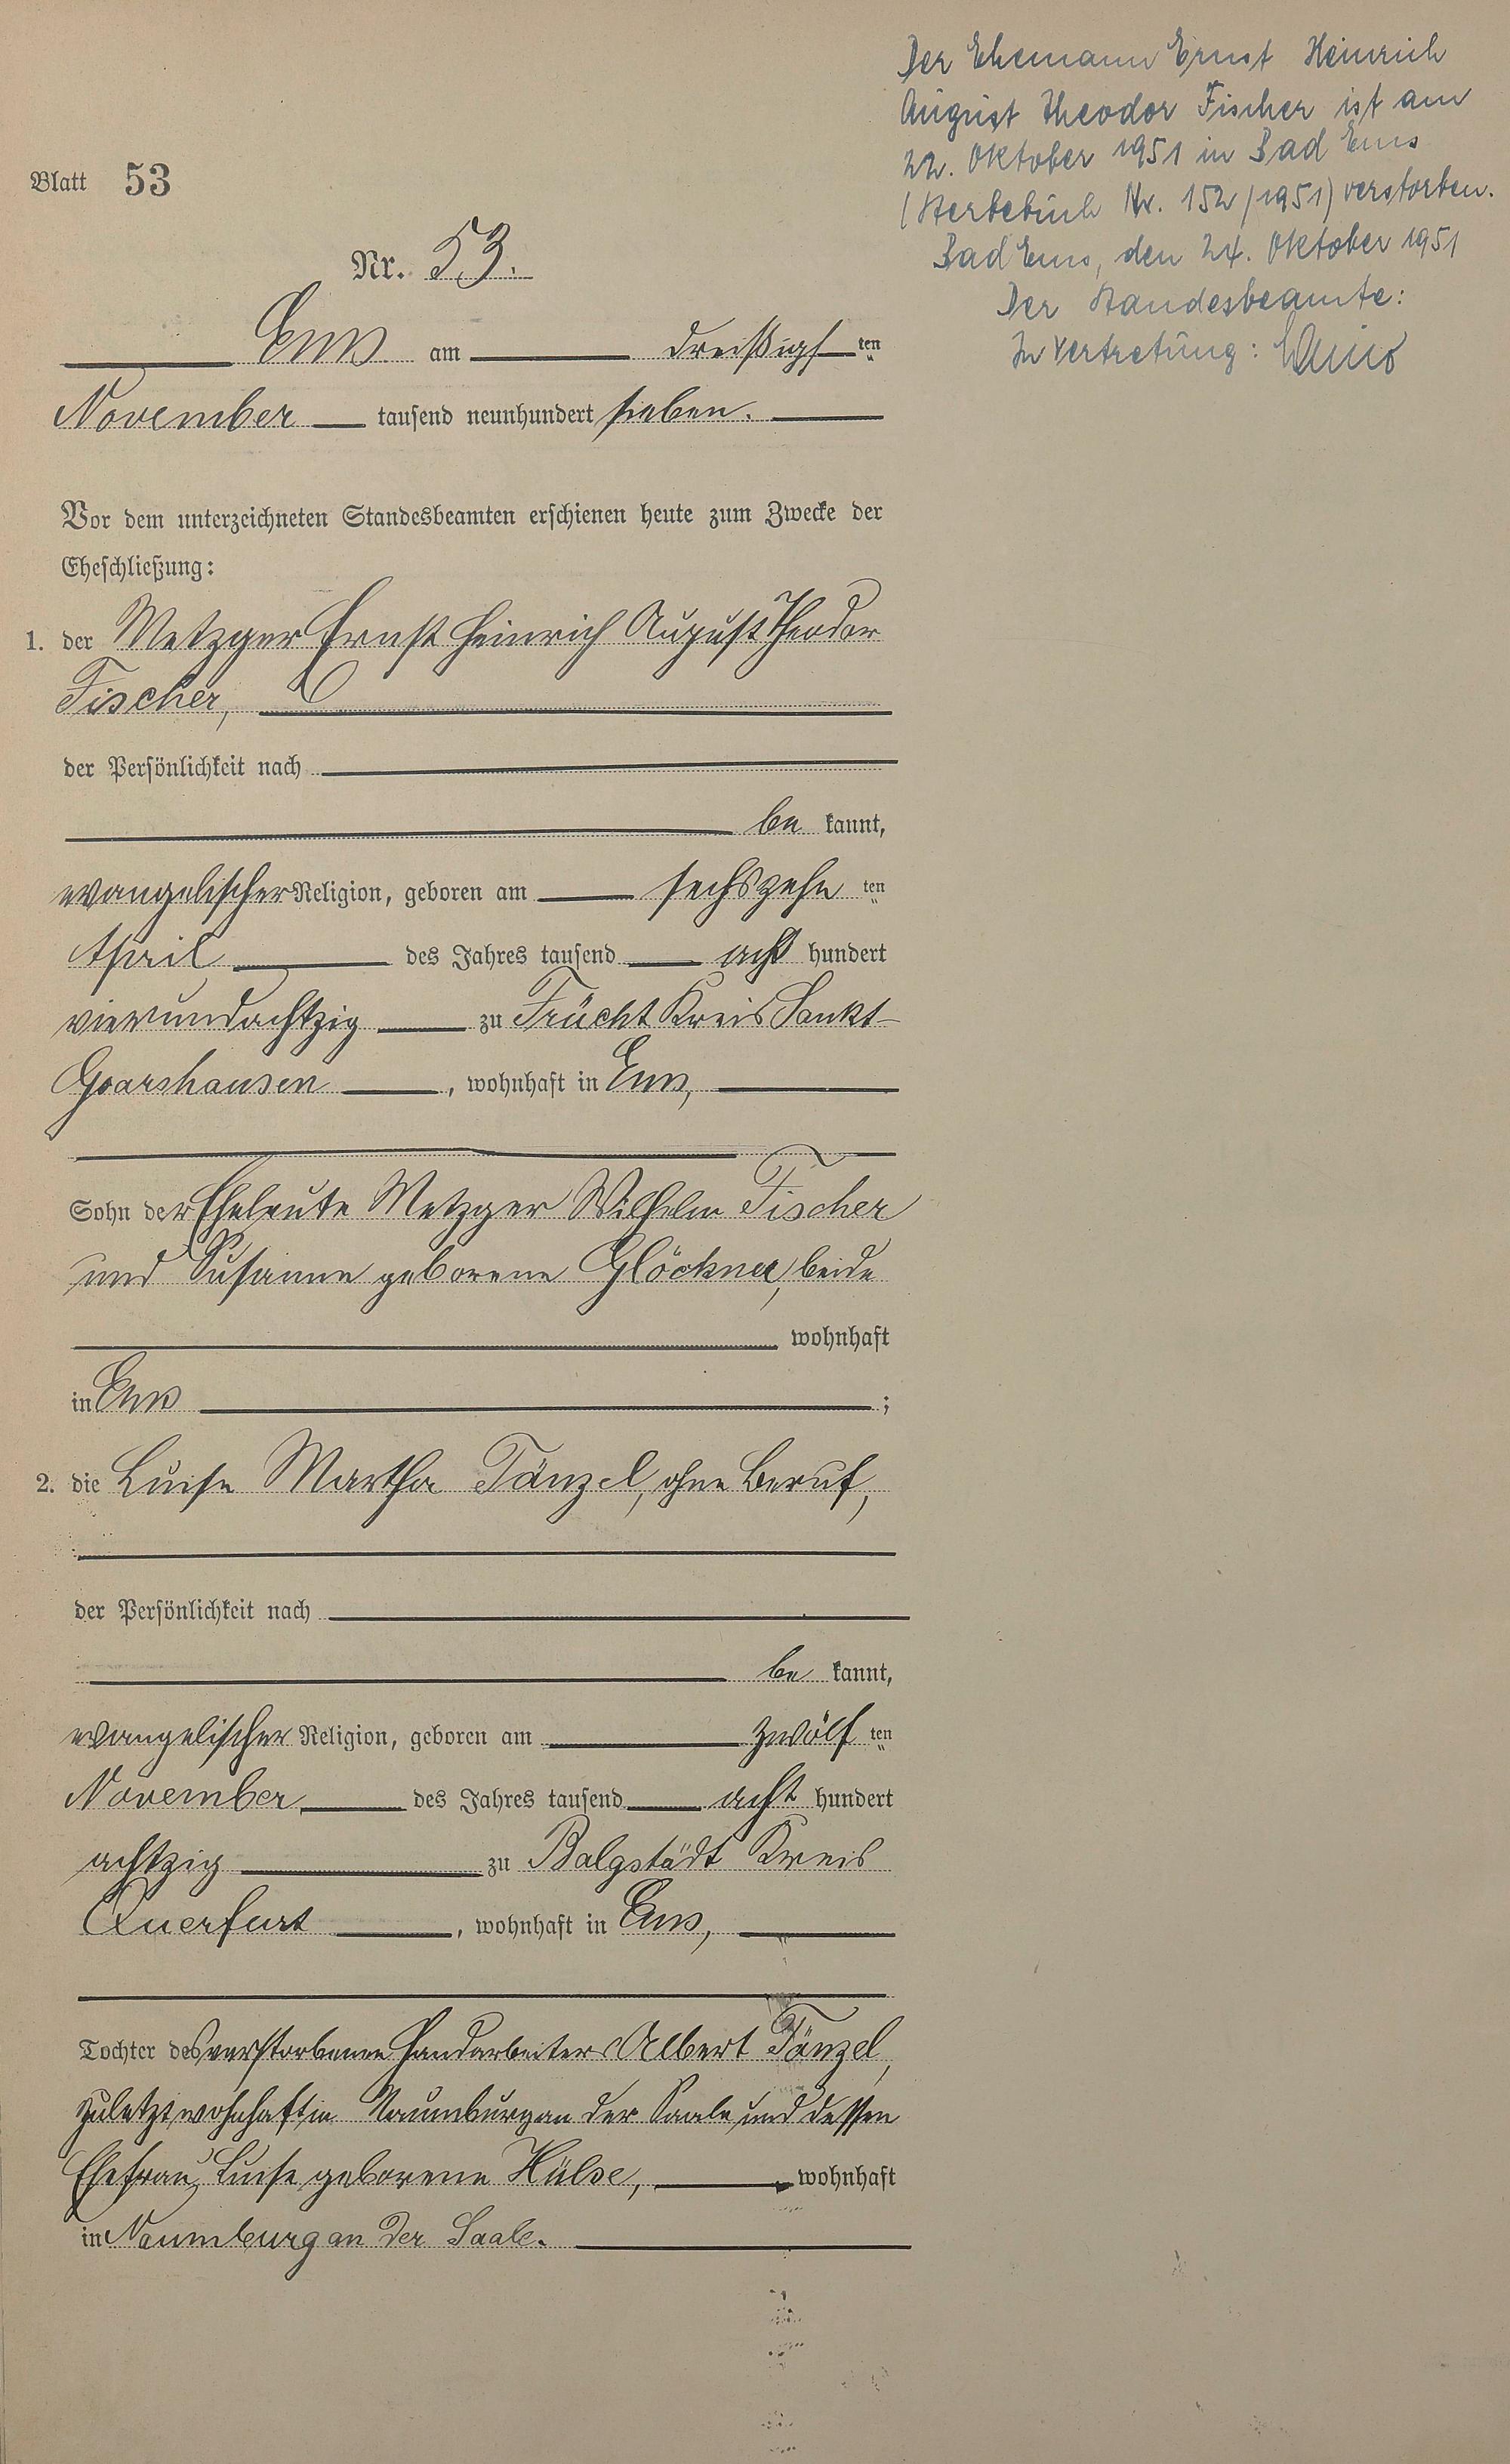 Der Ehemann Ernst Heinrich
August Theodor Fischer ist am
22. Oktober 1951 in Bad Ems
(Sterbebuch Nr. 152/1951) verstorben.
Bad Ems, den 24. Oktober 1951
Der Standesbeamte:
In Vertretung:
Blatt 53
Nr. 53.
Ems am dreißigsten
November tausend neunhundert sieben.
Vor dem unterzeichneten Standesbeamten erschienen heute zum Zwecke der
Eheschließung:
1. der Metzger Ernst Heinrich August Theodor
Fischer,
der Persönlichkeit nach
be kannt,
evangelischer Religion, geboren am sechszehn ten
April des Jahres tausend acht hundert
vierundachtzig zu Frücht Kreis Sankt-
Goarshausen, wohnhaft in Ems,
Sohn der Eheleute Metzger Wilhelm Fischer
und Susanne geborene Glöckner, beide
wohnhaft
in Ems ;
2. die Luise Martha Tänzel, ohne Beruf,
der Persönlichkeit nach
be kannt,
evangelischer Religion, geboren am zwölf ten
November des Jahres tausend acht hundert
achtzig zu Balgstädt Kreis
Querfurt, wohnhaft in Ems,
Tochter des verstorbenen Handarbeiters Albert Tänzel,
zuletzt wohnhaft in Naumburg an der Saale und dessen
Ehefrau Luise geborene Hülse, wohnhaft
in Naumburg an der Saale.